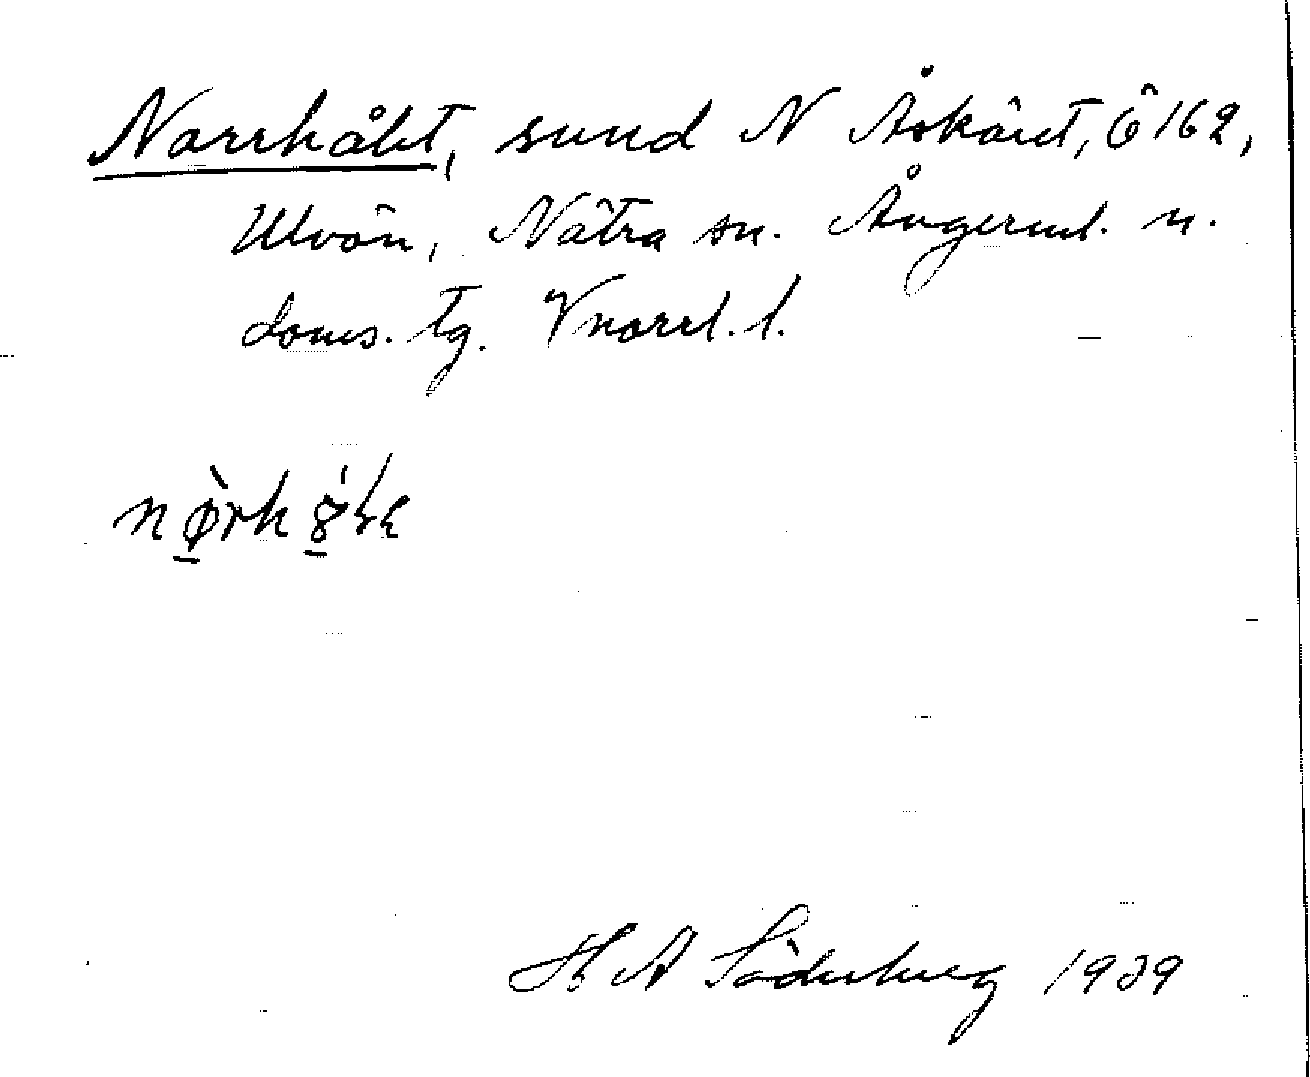 Norrhålet, sund N Åskäret, Ö 162,
Ulvön, Nätra sn. Ångerml. n.
doms. tg. Vnorrl. l.
H A Söderberg 1939